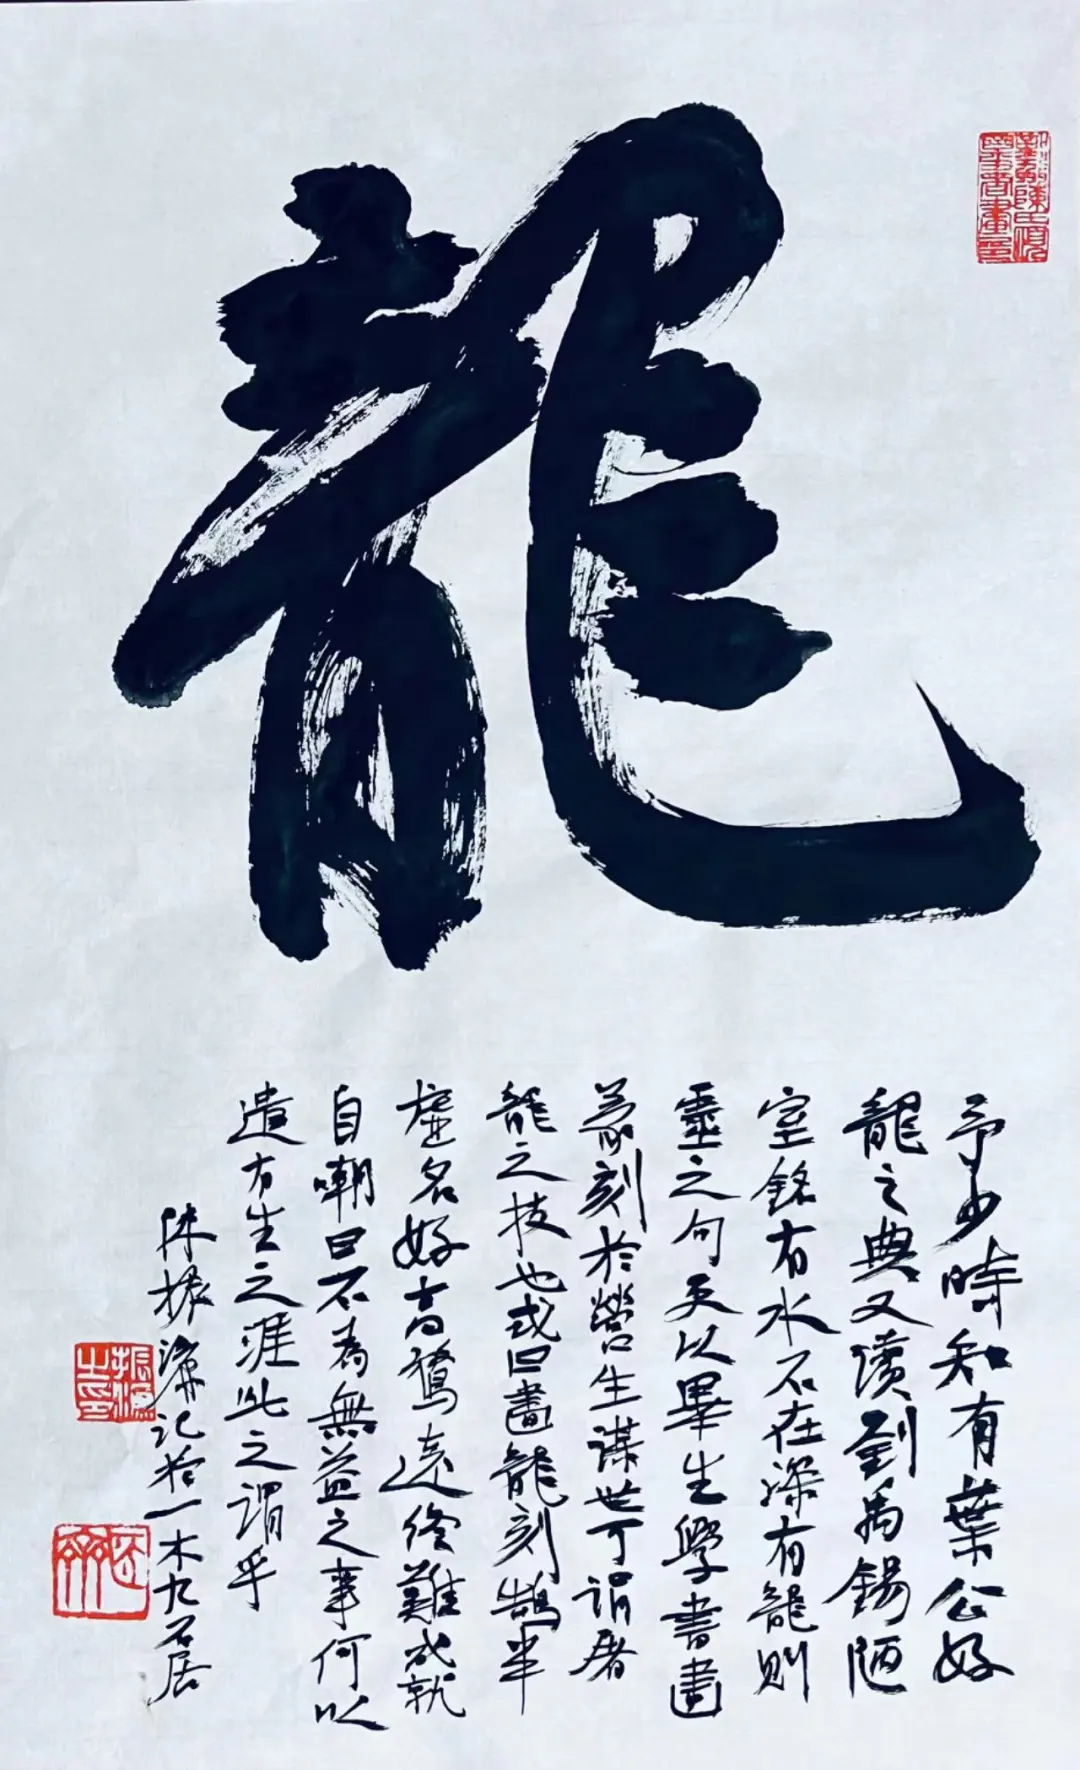 龍
予少時知有葉公好
龍之典又讀劉禹錫陋
室銘有水不在深有龍則
靈之句更以畢生學書畫
篆刻於營生謀世可謂屠
龍之技也或曰畫龍刻鵠半
虛名好高騖遠終難成就
自嘲曰不為無益之事何以
遣有生之涯此之謂乎
陳振濂記於一木九石居
振濂之印